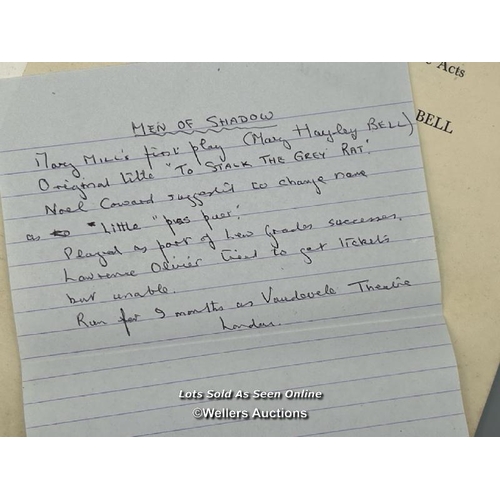 Acts
BELL
MEN OF SHADOW
Mary MILL's first play (Mary Hayley BELL)
Original title "To STALK THE GREY RAT."
Noel Coward suggest'd to change name
as "Little "
Played as part of Lew Grades successes.
Lawrence Olivier tried to get tickets
but unable.
Run for 9 months as Vaudevele Theatre
London.
Lots Sold As Seen Online
©Wellers Auctions